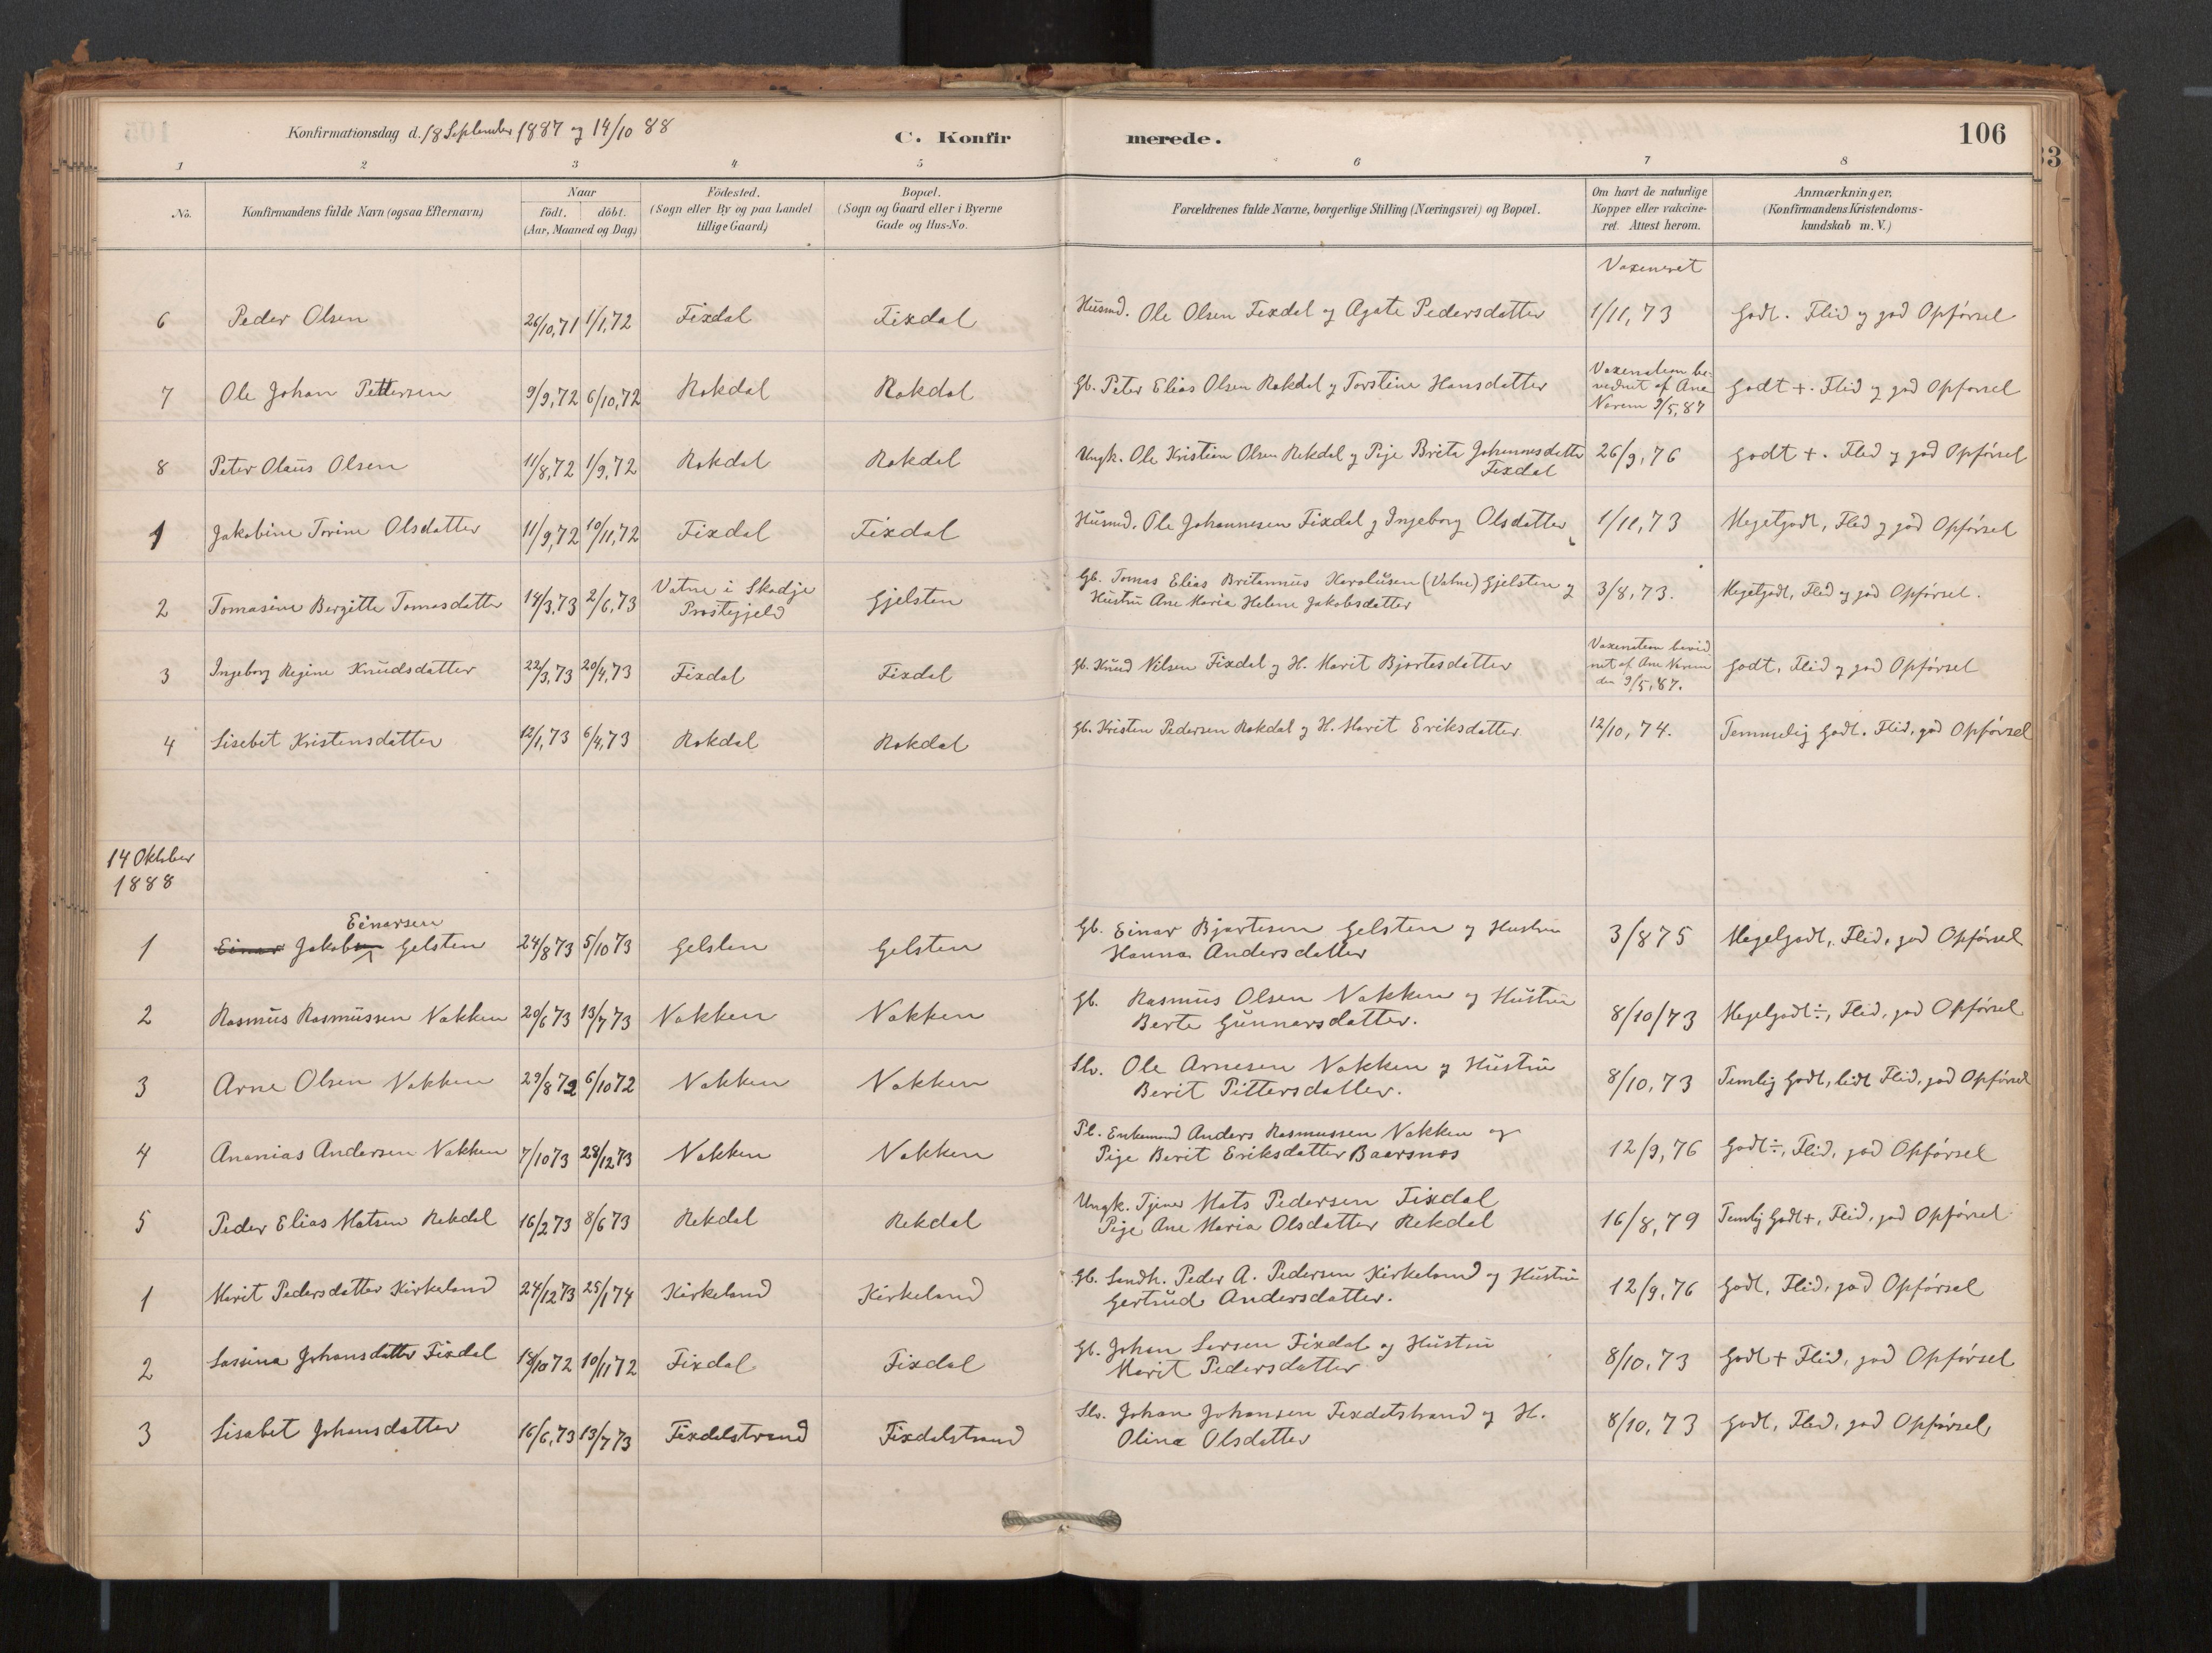 Konfirmationsdag d. 18 September 1887 og 14/10 88
C. Konfirmerede.
106
33
1 2 3 4 5 6 7 8
No.
Konfirmandens fulde Navn (ogsaa Efternavn)
Naar
födt. döbt.
(Aar, Maaned og Dag)
Födested.
(Sogn eller By og paa Landet
tillige Gaard)
Bopæl.
(Sogn og Gaard eller i Byerne
Gade og Hus-No.
Forældrenes fulde Navne, borgerlige Stilling (Næringsvei) og Bopæl.
Om havt de naturlige
Kopper eller vakcine-
ret. Attest herom.
Anmærkninger.
(Konfirmandens Kristendoms-
kundskab m. V.)
Vaxeneret
6 Peder Olsen 26/10,71 1/1,72 Fixdal Fixdal Husmd. Ole Olsen Fixdal og Agate Pedersdatter 1/11,73 Godt. Flid og god Opførsel
7 Ole Johan Pettersen 9/9,72 6/10,72 Rakdal Rakdal Gb. Peter Elias Olsen Rakdal og Torstine Hansdatter Vaxenation be-
vidnet af Ane
Narem 9/5,87 Godt +. Flid og god Opførsel
8 Peter Olaus Olsen 11/8,72 1/9,72 Rakdal Rakdal Ungk. Ole Kristian Olsen Rekdal og Pige Brita Johannesdatter
Fixdal 26/9,76 Godt +. Flid og god Opførsel
1 Jakobine Torine Olsdatter 11/9,72 10/11,72 Fixdal Fixdal Husmd. Ole Johannesen Fixdal og Ingeborg Olsdatter 1/11,73 Megetgodt, Flid og god Opførsel
2 Tomasine Bergitte Tomasdatter 14/3,73 2/6,73 Vatne i Skodje
Prestegjeld Gjelsten Gb. Tomas Elias Britannus Karolusen (Vatne) Gjelsten og
Hustru Ane Maria Helene Jakobsdatter 3/8,73. Megetgodt, Flid og god Opførsel.
3 Ingeborg Regine Knudsdatter 22/3,73 20/4,73 Fixdal Fixdal Gb. Knud Nilsen Fixdal og H. Marit Bjørtesdatter Vaxenation bevid
net af Ane Narem
den 9/5,87. Godt, Flid og god Opførsel
4 Lisebet Kristensdatter 12/1,73 6/4,73 Rakdal Rakdal Gb. Kristen Pedersen Rakdal og H. Marit Eriksdatter 12/10,74. Temmelig Godt. Flid, god Opførsel
14 Oktober
1888
Einarsen
1 Einar Jakobsen Gelsten 24/8 73 5/10 73 Gelsten Gelsten Gb. Einar Bjørtesen Gelsten og Hustru
Hanna Andersdatter 3/8 75 Megetgodt, Flid, god Opførsel
2 Rasmus Rasmussen Nakken 20/6 73 13/7 73 Nakken Nakken Gb. Rasmus Olsen Nakken og Hustru
Berte Gunnarsdatter. 8/10/73 Megetgodt ÷, Flid, god Opførsel
3 Arne Olsen Nakken 29/8 72 6/10 72 Nakken Nakken Slv. Ole Arnesen Nakken og Hustru
Berit Pittersdatter. 8/10,73 Temlig Godt, lidt Flid, god Opførsel
4 Ananias Andersen Nakken 7/10 73 28/12 73 Nakken Nakken Pl. Enkemand Anders Rasmussen Nakken og
Pige Berit Eriksdatter Baarsnæs 12/9,76 Godt ÷, Flid, god Opførsel
5 Peder Elias Matsen Rekdal 16/2 73 8/6 73 Rekdal Rekdal Ungk. Tjener Mats Pedersen Fixdal
Pige Ane Maria Olsdatter Rekdal 16/8,79 Temlig Godt +, Flid, god Opførsel
1 Marit Pedersdatter Kirkeland 24/12 73 25/1 74 Kirkeland Kirkeland Gb. Landh. Peder A. Pedersen Kirkeland og Hustru
Gertrud Andersdatter. 12/9,76 Godt, Flid, god Opførsel
2 Lassina Johansdatter Fixdal 18/10 72 10/11 72 Fixdal Fixdal Gb. Johan Larsen Fixdal og Hustru
Marit Pedersdatter 8/10,73 Godt + Flid, god Opførsel
3 Lisabet Johansdatter 16/6,73 13/7 73 Fixdalstrand Fixdalstrand Slv. Johan Johansen Fixdalstrand og H.
Olina Olsdatter 8/10,73 Godt, Flid, god Opførsel,